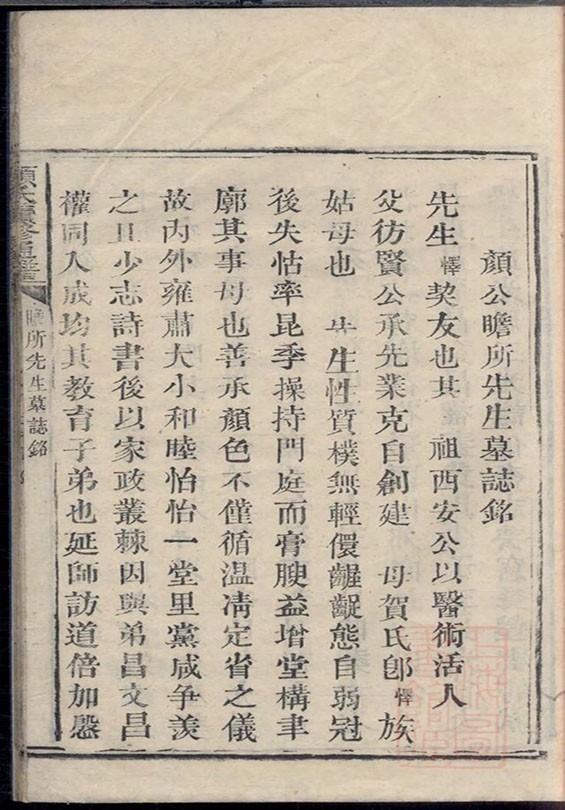 顏公瞻所先生墓誌銘
先生懌契友也其 祖西安公以醫術活人
父彷賢公承先業克自創建 母賀氏卽懌族
姑母也 先生性質樸無輕儇齷齪態自弱冠
後失怙率昆季操持門庭而膏腴益增堂構聿
廓其事母也善承顏色不僅循温凊定省之儀
故内外雍肅大小和睦怡怡一堂里黨咸爭羡
之且少志詩書後以家政叢棘因與弟昌文昌
權同入成均其教育子弟也延師訪道倍加慇
顏氏續修通譜
瞻所先生墓誌銘